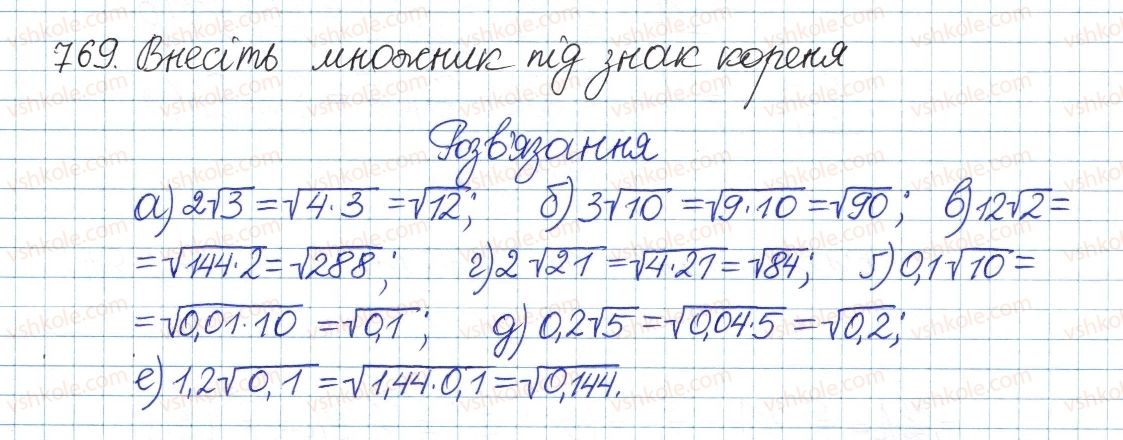 769. Внесіть множник під знак кореня
Розв'язання
а) 2√3 = √4·3 = √12; б) 3√10 = √9·10 = √90; в) 12√2 =
= √144·2 = √288; г) 2√21 = √4·21 = √84; ґ) 0,1√10 =
= √0,01·10 = √0,1; д) 0,2√5 = √0,04·5 = √0,2;
е) 1,2√0,1 = √1,44·0,1 = √0,144.